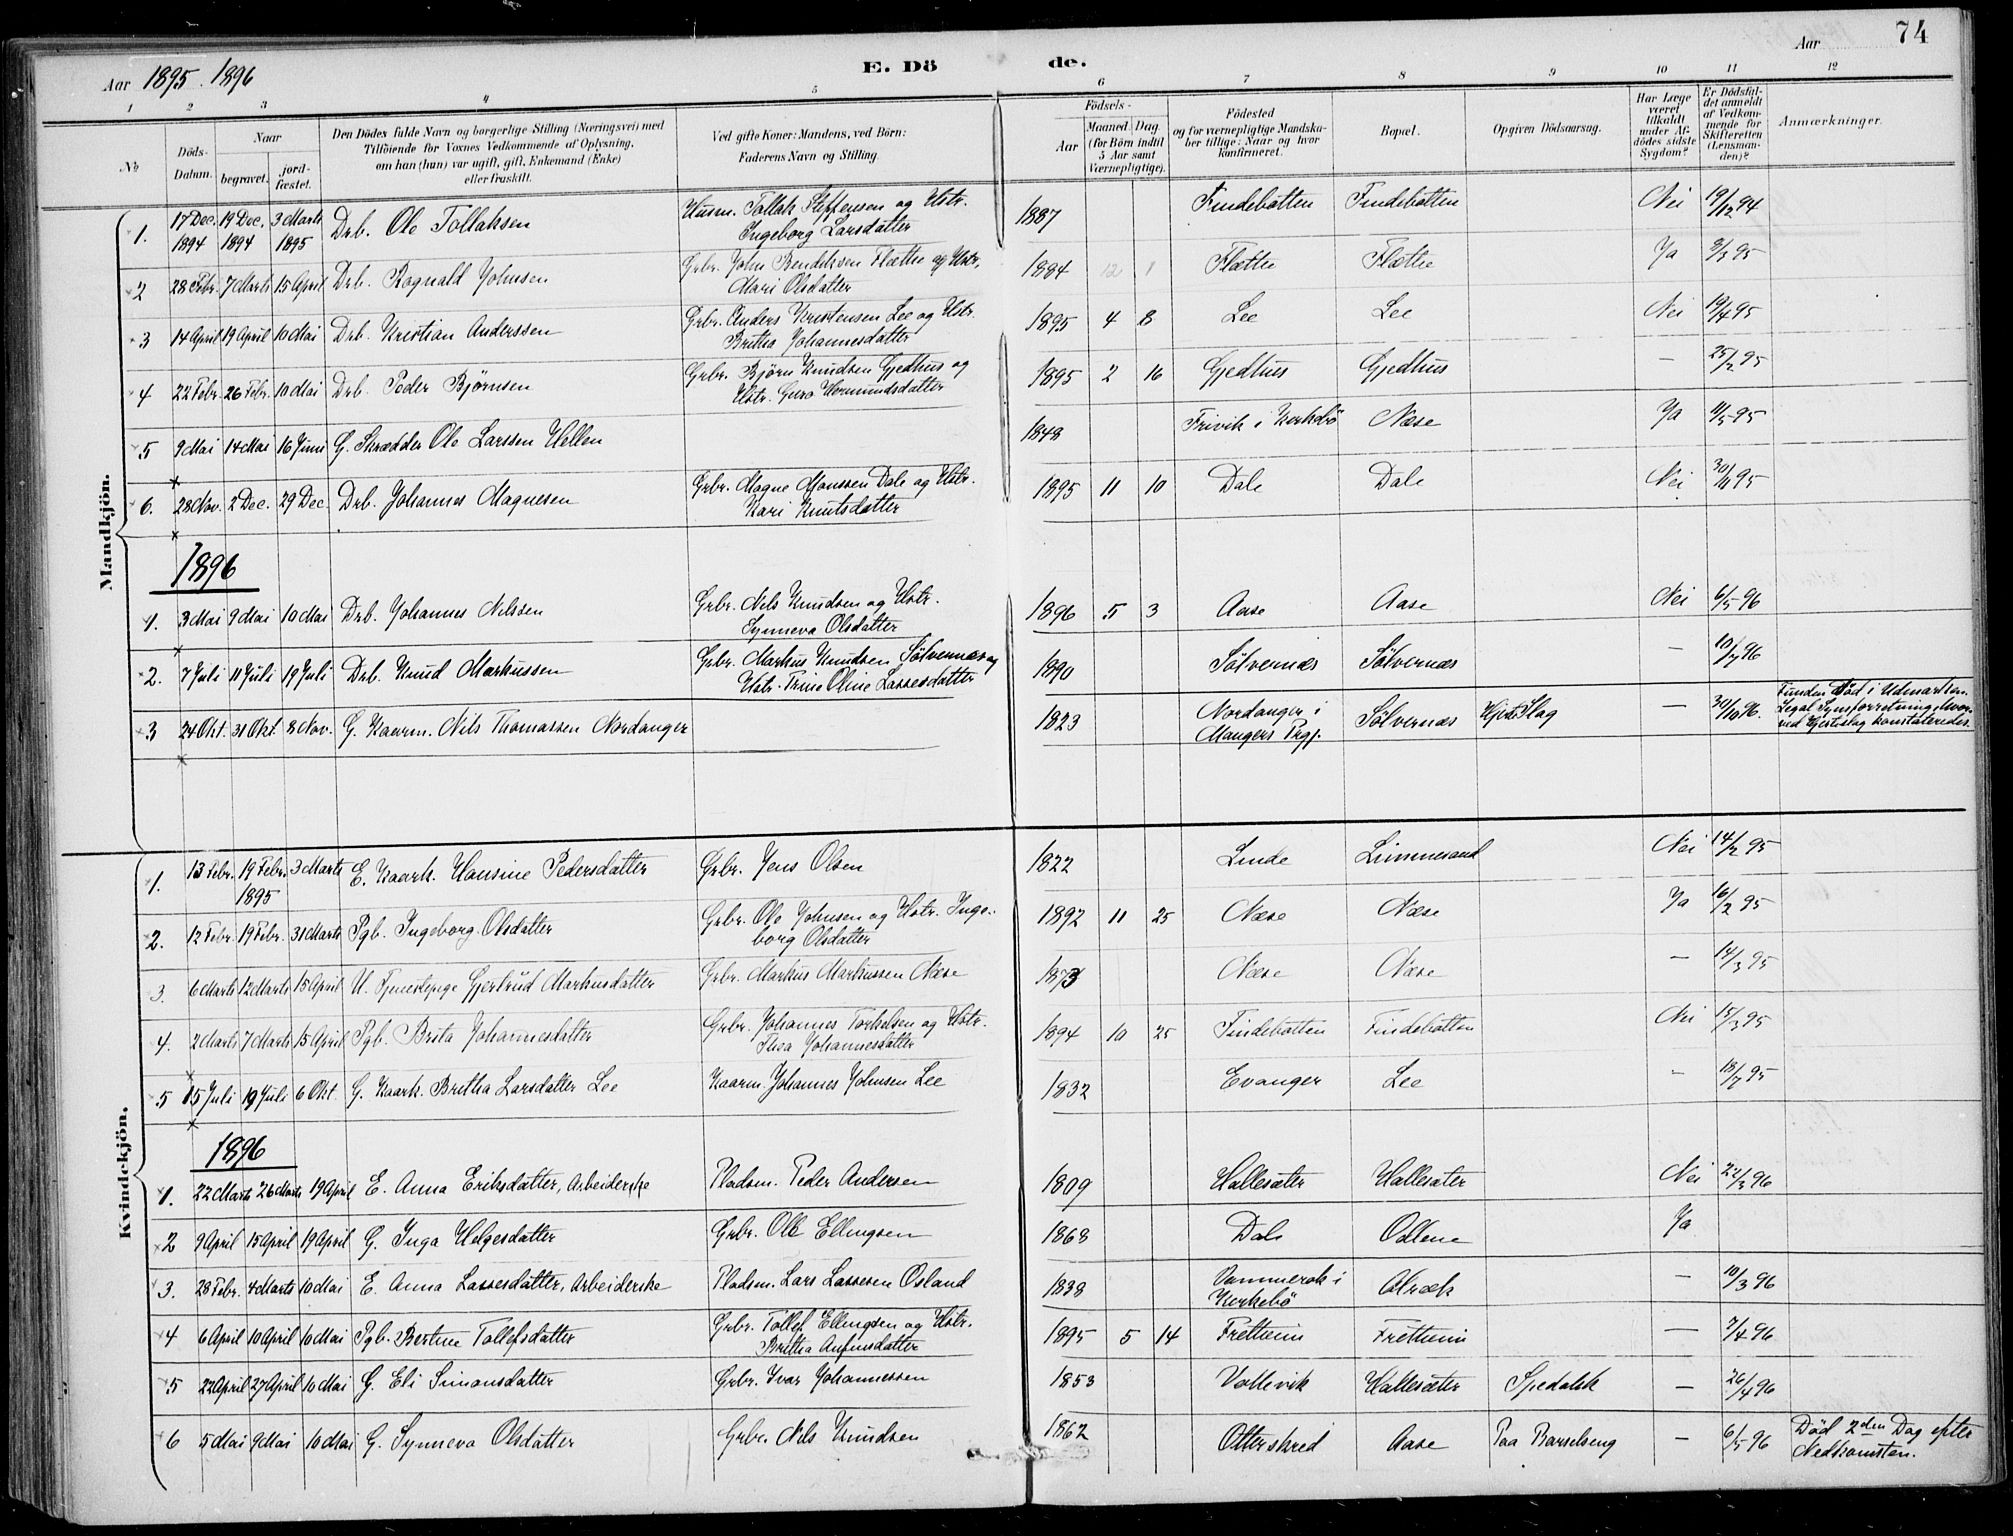 Aar 1895. 1896
E. Dö de.
Aar 74
1 2 3 4 5 6 7 8 9 10 11 12
No.
Döds-Datum.
Naar
begravet.
jord-fæstet.
Den Dödes fulde Navn og borgerlige Stilling (Næringsvei) med
Tilföiende for Voxnes Vedkommende af Oplysning,
om han (hun) var ugift, gift, Enkemand (Enke)
eller fraskilt.
Ved gifte Koner: Mandens, ved Börn:
Faderens Navn og Stilling.
Födsels-
Aar
Maaned. Dag.
(for Börn indtil
5 Aar samt
Værnepligtige).
Födested
og for værnepligtige Mandska-
ber tillige: Naar og hvor
konfirmeret.
Bopæl.
Opgiven Dödsaarsag.
Har Læge
været
tilkaldt
under Af-
dödes sidste
Sygdom?
Er Dødsfal-
det anmeldt
af Vedkom-
mende for
Skifteretten
(Lensman-
den)?
Anmærkninger.
Mandkjön.
1. 17 Dec. 1894 19 Dec. 1894 3 Marts 1895 Drb. Ole Tollaksen Husm. Tollak Steffensen og Hstr. Ingeborg Larsdatter 1887 Findebotten Findebotten Nei 19/12 94
2 28 Febr. 7 Marts 15 April Drb. Ragnald Johnsen Grbr. John Bendiksen Flætte og Hstr. Mari Olsdatter 1884 12 1 Flætte Flætte Ja 2/3 95
3 14 April 19 April 10 Mai Drb. Kristian Anderssen Grbr. Anders Kristensen Lee og Hstr. Britha Johannesdatter 1895 4 8 Lee Lee Nei 19/4 95
4 22 Febr. 26 Febr. 10 Mai Drb. Peder Bjørnsen Grbr. Bjørn Knudsen Gjedhus og Hstr. Guro Hermundsdatter 1895 2 16 Gjedhus Gjedhus — 25/2 95
5 9 Mai 14 Mai 16 Juni G. Skrædder Ole Larssen Hellen 1848 Frivik i Kirkebö Næse Ja 11/5 95
6. 28 Nov. 2 Dec. 29 Dec. Drb. Johannes Magnesen Grbr. Magne Monssen Dale og Hstr. Kari Knutsdatter 1895 11 10 Dale Dale Nei 30/11 95
1896
1. 3 Mai 9 Mai 10 Mai Drb. Johannes Nilssen Grbr. Nils Knudsen og Hstr. Synneva Olsdatter 1896 5 3 Aase Aase Nei 6/5 96
2. 7 Juli 11 Juli 19 Juli Drb. Knud Markussen Grbr. Markus Knudsen Sölvernæs og Hstr. Trine Oline Lassesdatter 1890 Sölvernæs Sölvernæs — 10/7 96
3 24 Okt. 31 Okt. 8 Nov. G. Kaarm. Nils Thomassen Nordanger 1823 Nordanger i Mangers Prgj. Sölvernæs Hjerteslag — 30/10 96. Funden död i Udmarken. Legal Synforretning, hvorved Hjerteslag konstateredes.
Kvindekjön.
1. 13 Febr. 19 Febr. 1895 3 Marts E. Kaark. Hansine Pedersdatter Grbr. Jens Olsen 1822 Linde Limmesand Nei 14/2 95
2. 12 Febr. 19 Febr. 31 Marts Pgb. Ingeborg Olsdatter Grbr. Ole Johnsen og Hstr. Ingeborg Olsdatter 1892 11 25 Næse Næse Ja 16/2 95
3. 6 Marts 12 Marts 15 April U. Tjenestepige Gjertrud Markusdatter Grbr. Markus Markussen Næse 1873 Næse Næse — 14/3 95
4. 2 Marts 7 Marts 15 April Pgb. Brita Johannesdatter Grbr. Johannes Torkelsen og Hstr. Thea Johannesdatter 1894 10 25 Findebotten Findebotten Nei 15/3 95
5 15 Juli 19 Juli 6 Okt. G. Kaark. Britha Larsdatter Lee Kaarm. Johannes Johnsen Lee 1832 Evanger Lee — 18/7 95
1896
1. 22 Marts 26 Marts 19 April E. Anna Eriksdatter, Arbeiderske Pladsm. Peder Andersen 1809 Hallesæter Hallesæter Nei 22/3 96
2 9 April 15 April 19 April G. Inga Helgesdatter Grbr. Ole Ellingsen 1868 Dale Odlene Ja
3. 28 Febr. 4 Marts 10 Mai E. Anna Lassesdatter, Arbeiderske Pladsm. Lars Lassesen Osland 1838 Vammerak i Kirkebö Alræk — 10/3 96
4 6 April 10 April 10 Mai Pgb. Bertine Tollefsdatter Grbr. Tollef Ellingsen og Hstr. Britha Anfinsdatter 1895 5 14 Fretheim Fretheim — 7/4 96
5 22 April 27 April 10 Mai G. Eli Simonsdatter Grbr. Ivar Johannessen 1853 Vattevik Hallesæter Spedalsk — 26/4 96
6 5 Mai 9 Mai 10 Mai G. Synneva Olsdatter Grbr. Nils Knudsen 1862 Otterskred Aase Paa Barselseng — 6/5 96 Död 2den Dag efter Nedkomsten.